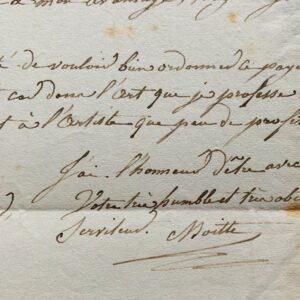 a mon avantage
té de vouloir bien ordonner a paye
t car dans l'art que je professe
t à l'artiste que peu de profi
J'ai l'honneur d'etre avec
Votre tres humble et tres obe
Serviteur. Moitte